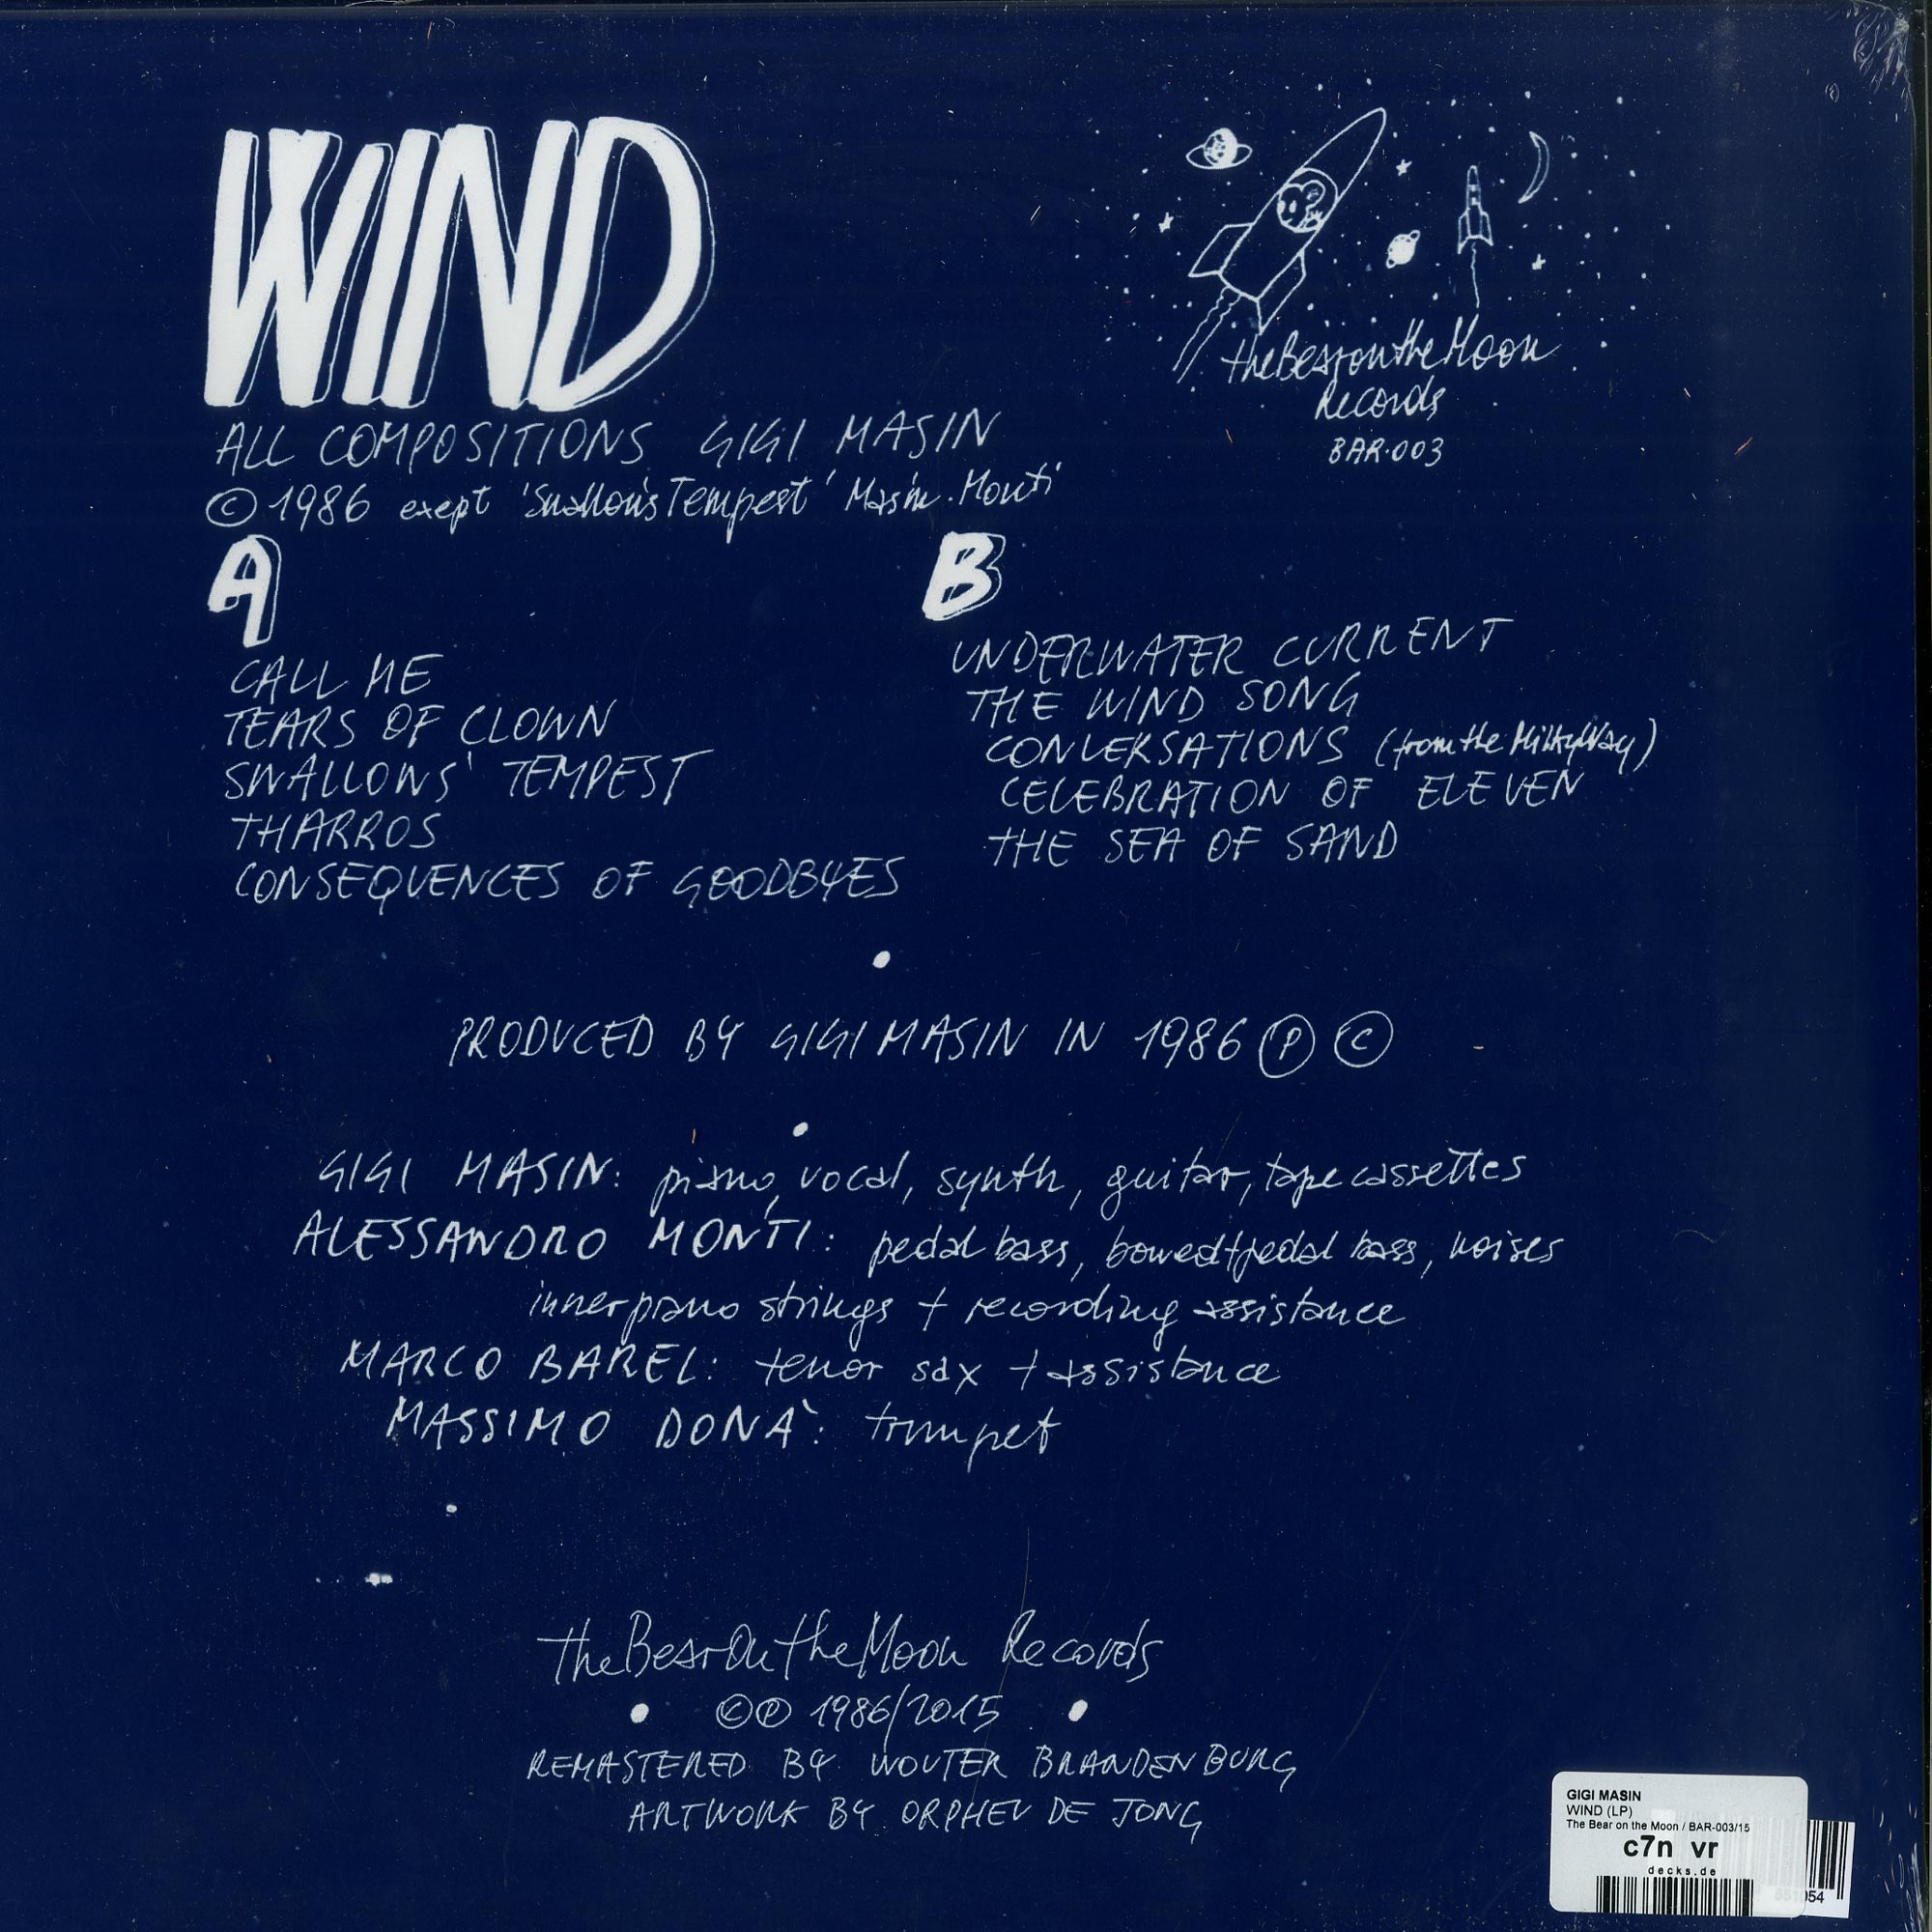 WIND
theBearontheMoon
Records
BAR·003
ALL COMPOSITIONS GIGI MASIN
© 1986 exept 'Swallow's Tempest' Masin.Monti
A
CALL ME
TEARS OF CLOWN
SWALLOWS' TEMPEST
THARROS
CONSEQUENCES OF GOODBYES
B
UNDERWATER CURRENT
THE WIND SONG
CONVERSATIONS (from the MilkyWay)
CELEBRATION OF ELEVEN
THE SEA OF SAND
PRODUCED BY GIGI MASIN IN 1986 Ⓟ ©
GIGI MASIN: piano, vocal, synth, guitar, tape cassettes
ALESSANDRO MONTI: pedal bass, bowed+pedal bass, noises
inner piano strings + recording assistance
MARCO BAREL: tenor sax + assistance
MASSIMO DONA': trumpet
theBearOntheMoon Records
©Ⓟ 1986/2015
REMASTERED BY WOUTER BRANDENBURG
ARTWORK BY ORPHEU DE JONG
GIGI MASIN
WIND (LP)
The Bear on the Moon / BAR-003/15
c7n vr
decks.de